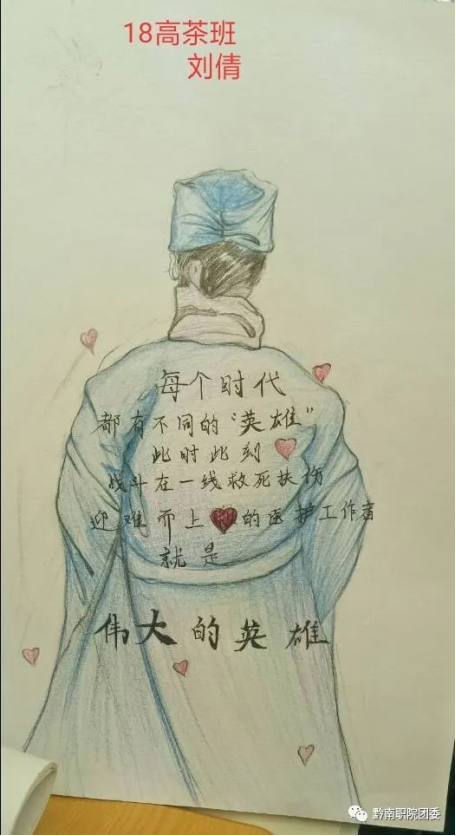 18高茶班
刘倩
每个时代
都有不同的“英雄”
此时此刻
战斗在一线救死扶伤
迎难而上的医护工作者
就是
伟大的英雄
黔南职院团委